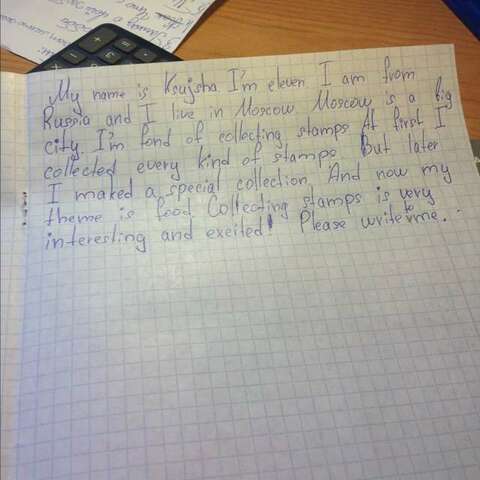 My name is Ksujsha I'm eleven I am from
Russia and I live in Moscow. Moscow is a big
city. I'm fond of collecting stamps At first I
collected every kind of stamps. But later
I maked a special collection. And now my
theme is food. Collecting stamps is very
interesting and excited! Please write to me.